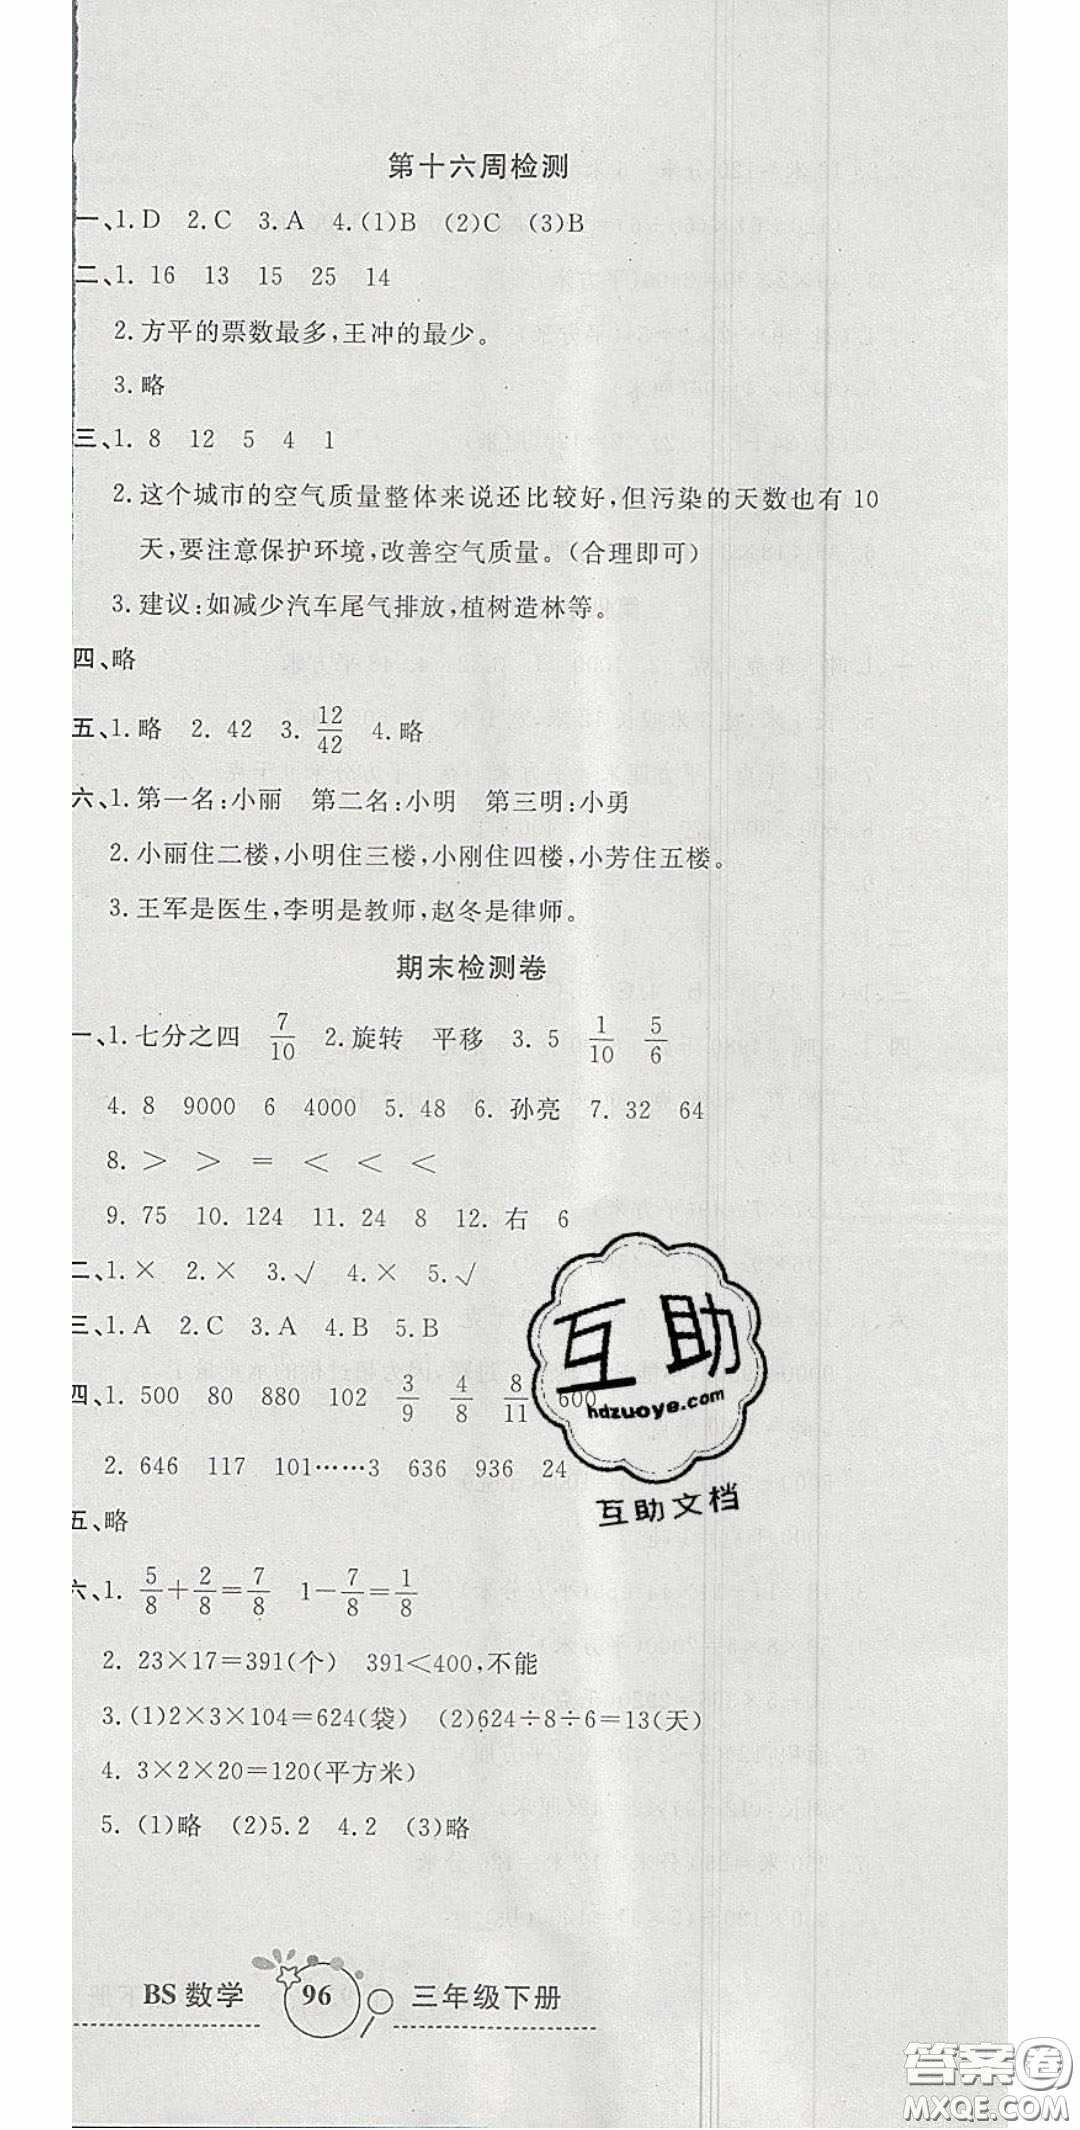 第十六周检测
一、1.D 2.C 3.A 4.(1)B (2)C (3)B
二、1. 16 13 15 25 14
2.方平的票数最多,王冲的最少。
3.略
三、1. 8 12 5 4 1
2.这个城市的空气质量整体来说还比较好,但污染的天数也有10
天,要注意保护环境,改善空气质量。(合理即可)
3.建议:如减少汽车尾气排放,植树造林等。
四、略
五、1.略 2. 42 3. 12/42 4.略
六、1.第一名:小丽 第二名:小明 第三明:小勇
2.小丽住二楼,小明住三楼,小刚住四楼,小芳住五楼。
3.王军是医生,李明是教师,赵冬是律师。
期末检测卷
一、1.七分之四 7/10 2.旋转 平移 3. 5 1/10 5/6
4. 8 9000 6 4000 5. 48 6. 孙亮 7. 32 64
8. > > = < < <
9. 75 10. 124 11. 24 8 12. 右 6
二、1.× 2.× 3.√ 4.× 5.√
三、1.A 2.C 3.A 4.B 5.B
四、1. 500 80 880 102 3/9 4/8 8/11 600
2. 646 117 101……3 636 936 24
五、略
六、1. 5/8+2/8=7/8 1-7/8=1/8
2. 23×17=391(个) 391<400,不能
3.(1)2×3×104=624(袋) (2)624÷8÷6=13(天)
4. 3×2×20=120(平方米)
5. (1)略 (2)5.2 4.2 (3)略
BS 数学 96 三年级下册
互助
hdzuoye.com
互助文档
答案卷
MXQE.COM